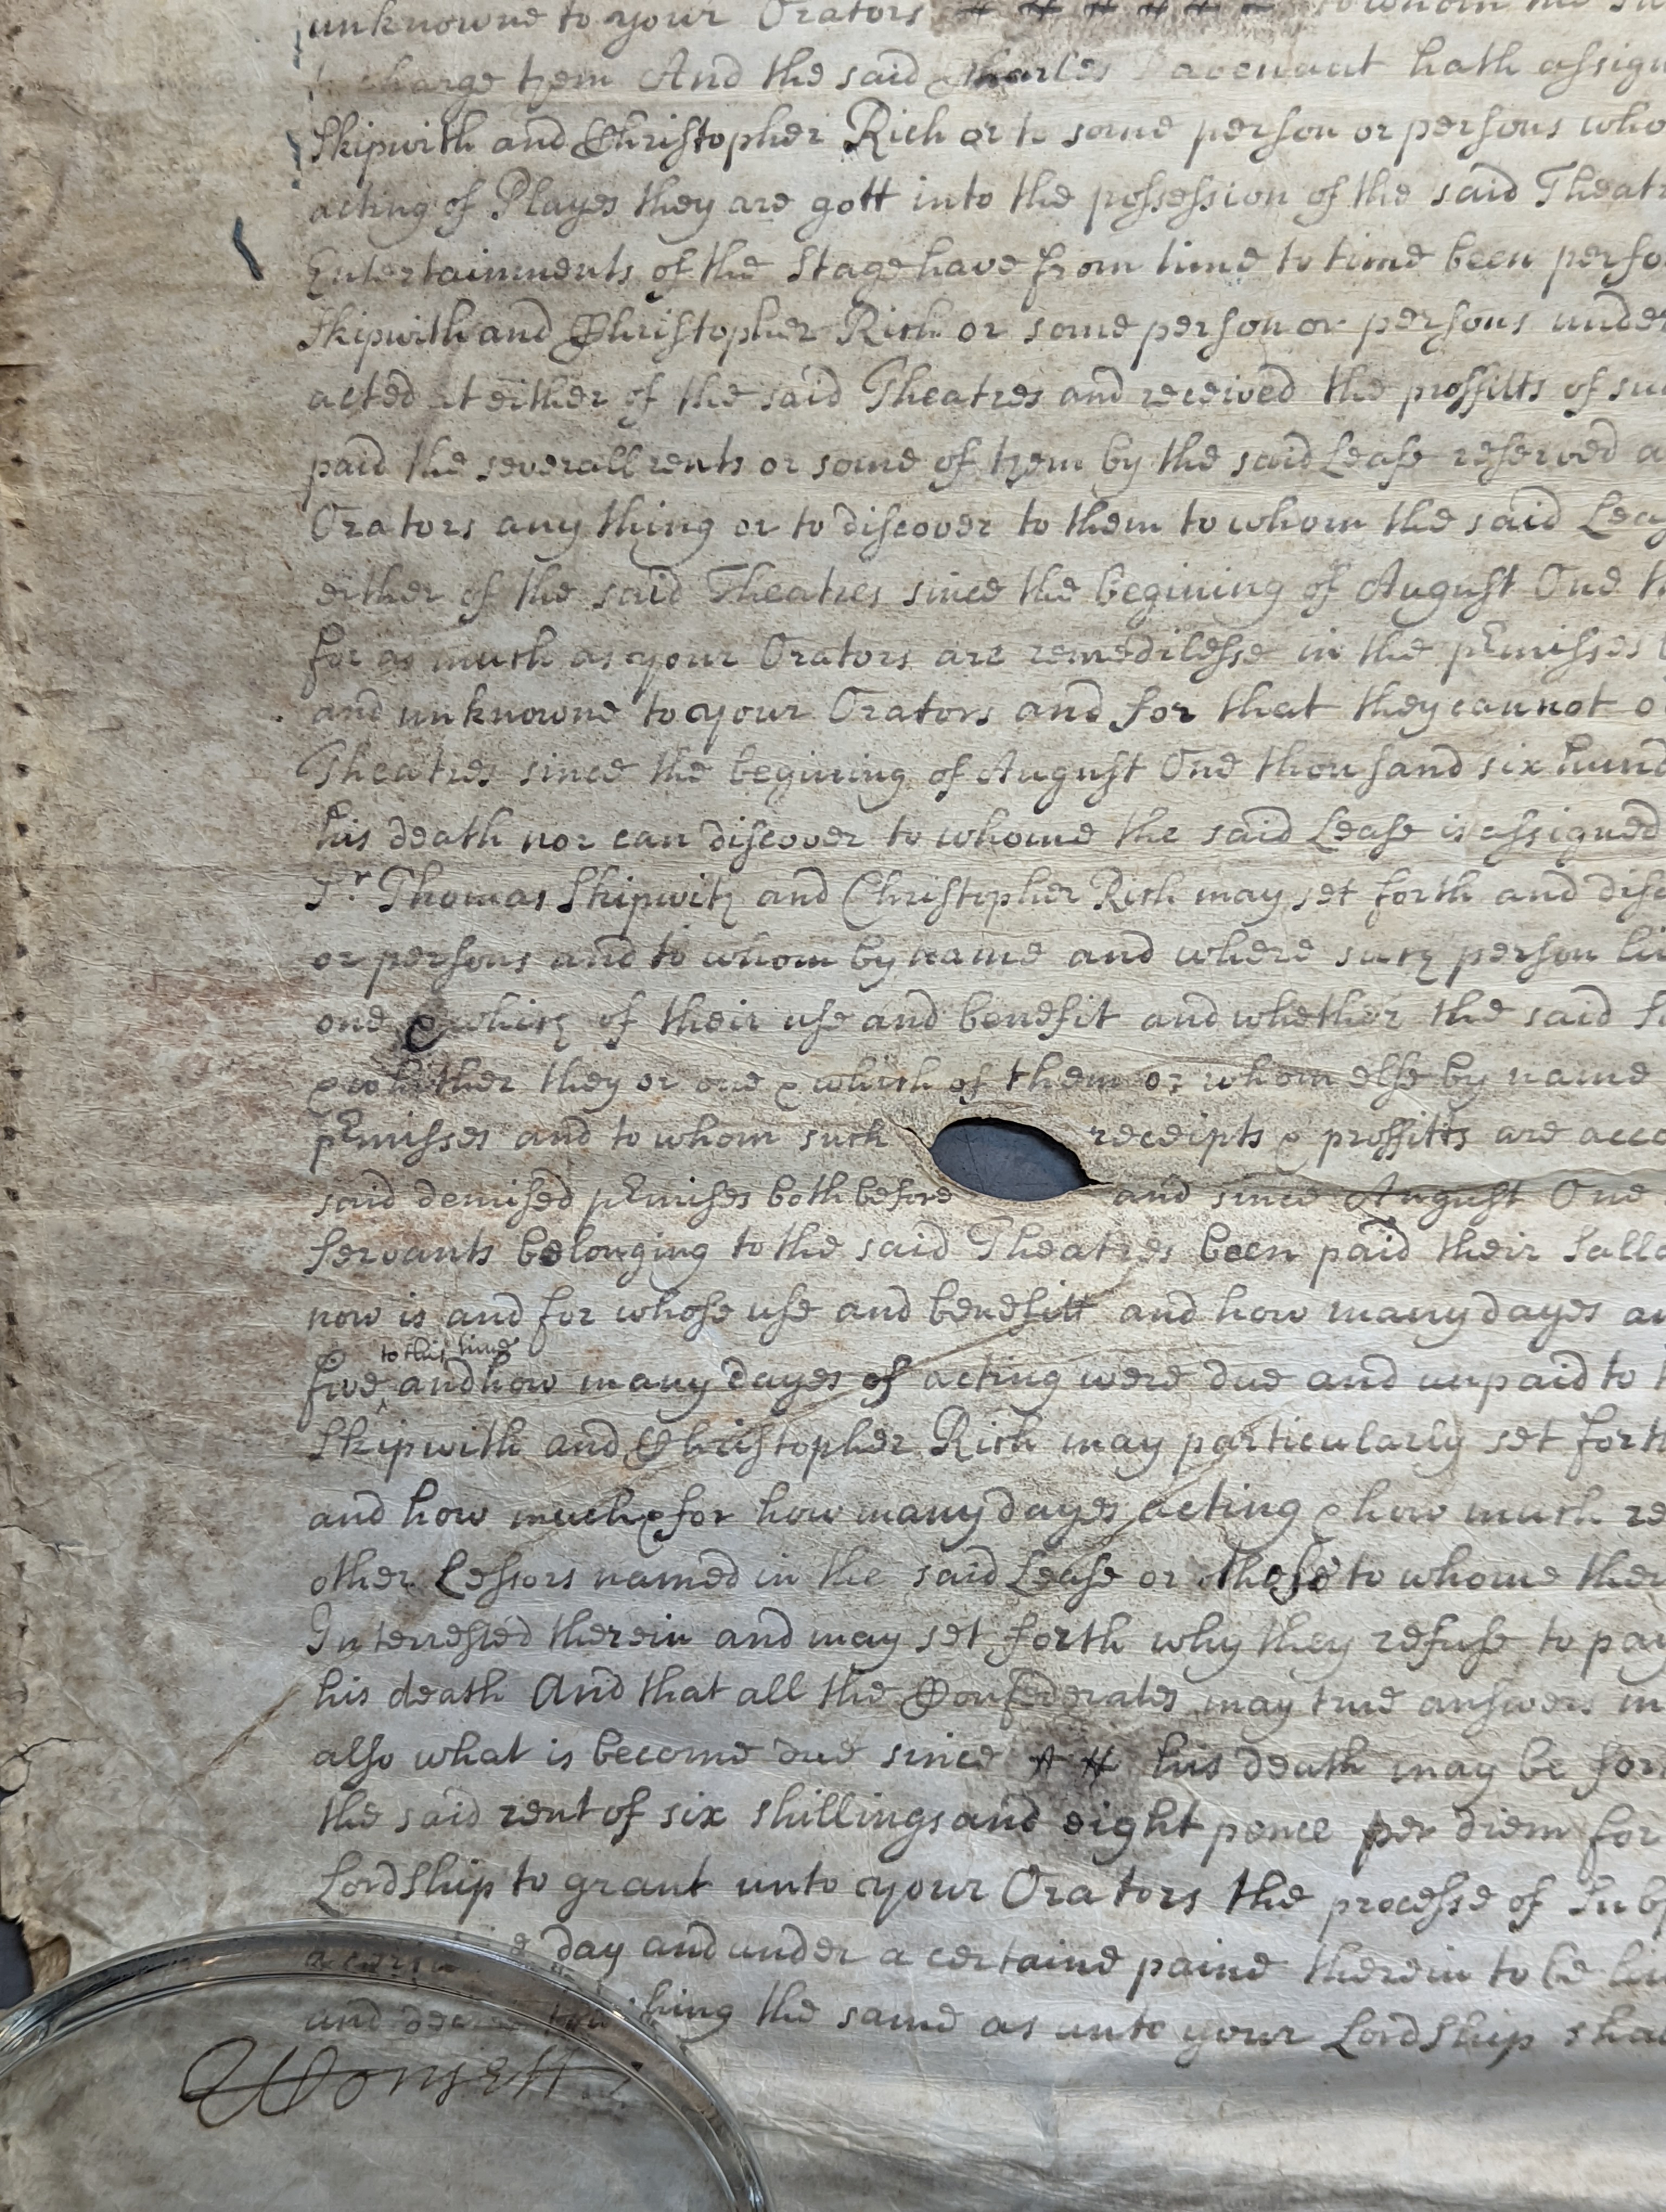 unknowne to your Orators
charge them And the said Charles Davenant hath assign
Skipwith and Christopher Rich or to some person or persons who
acting of Playes they are gott into the possession of the said Theatr
Entertainments of the Stage have from time to time been perfo
Skipwith and Christopher Rich or some person or persons under
acted at either of the said Theatres and received the proffitts of su
paid the severall rents or some of them by the said Lease reserved a
Orators any thing or to discover to them to whom the said Leas
either of the said Theatres since the begining of August One th
for as much as your Orators are remedilesse in the pEmisses
and unknowne to your Orators and for that they cannot o
Theatres since the begining of August One thousand six hund
his death nor can discover to whome the said Lease is assigned
Sr. Thomas Skipwith and Christopher Rich may set forth and disc
or persons and to whom by name and where such person li
one & which of their use and benefit and whether the said S
& whither they or one & which of them or whom else by name
pEmisses and to whom such receipts & proffitts are acco
said demised pEmises both before and since August One
Servants belonging to the said Theatres been paid their salla
now is and for whose use and benefitt and how many dayes an
to this time
five ^ and how many dayes of acting were due and unpaid to t
Skipwith and Christopher Rich may particularly set forth
and how much & for how many dayes acting & how much re
other Lessors named in the said Lease or those to whome ther
Interrested therein and may set forth why they refuse to pay
his death And that all the Confederates may true answers m
also what is become due since his death may be for
the said rent of six shillings and eight pence per diem for
Lordship to grant unto your Orators the processe of Subp
day and under a certaine paine therein to be lim
and the same as unto your Lordship shal